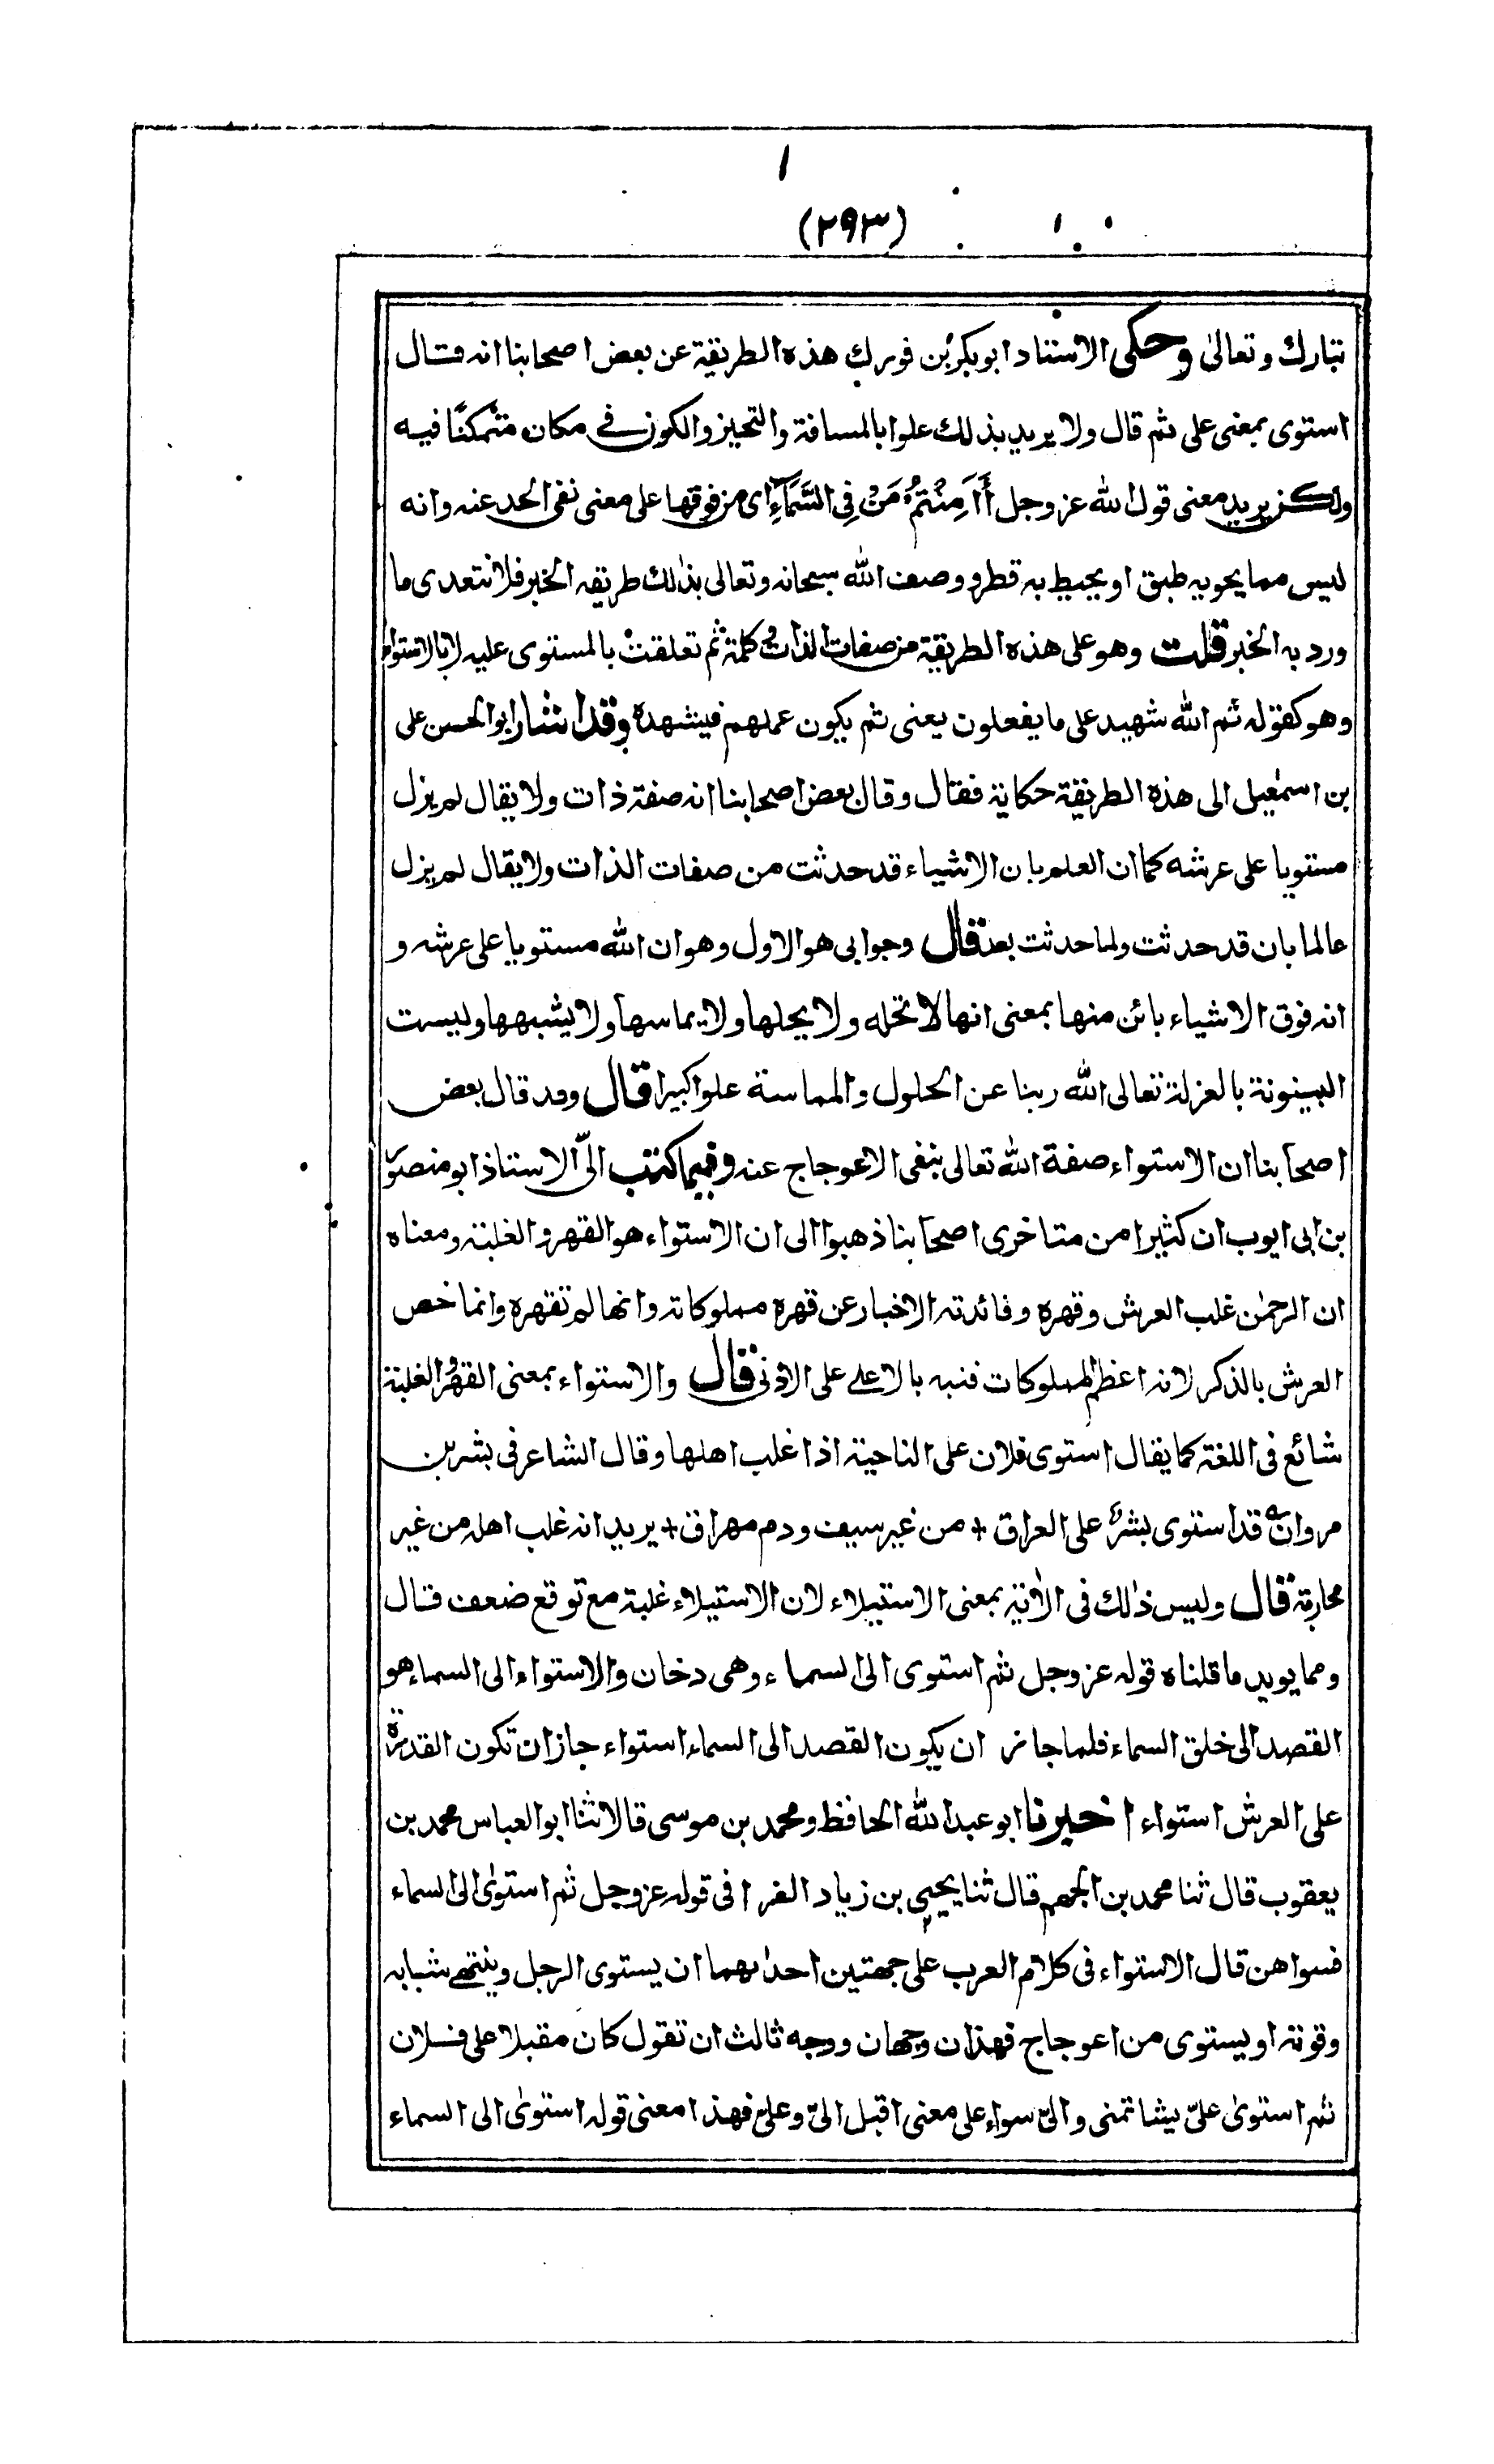 (۲۹۳)
تبارك وتعالىٰ وحكى الاستاد ابوبكر بن فورك هذه الطريقة عن بعض اصحابنا انه قال
استوى بمعنى على ثم قال ولا يريد بذلك علوا بالمسافة والتحيز والكون فى مكان متمكنًا فيه
ولكن يريد معنى قول الله عز وجل أَأَمِنْتُمْ مَنْ فِى السَّمَآءِ اى من فوقها على معنى نفى الحد عنه وانه
ليس مما يحويه طبق او يحيط به قطر ووصف الله سبحانه وتعالى بذلك طريقه الخبر فلا نتعدى ما
ورد به الخبر قلت وهو على هذه الطريقة من صفات الذات و كلمة ثم تعلقت بالمستوى عليه لا بالاستواء
وهو كقوله ثم الله شهيد على ما يفعلون يعنى ثم يكون عملهم فيشهده وقد اشار ابوالحسن على
بن اسمٰعيل الى هذه الطريقة حكاية فقال وقال بعض اصحابنا انه صفة ذات ولا يقال لم يزل
مستويا على عرشه كما ان العلم بان الاشياء قد حدثت من صفات الذات ولا يقال لم يزل
عالما بان قد حدثت ولما حدثت بعد قال وجوابى هو الاول وهو ان الله مستويا على عرشه و
انه فوق الاشياء بائن منها بمعنى انها لا تحله ولا يحلها ولا يماسها ولا يشبهها وليست
البينونة بالعزلة تعالى الله ربنا عن الحلول والمماسة علوا كبيرا قال وقد قال بعض
اصحابنا ان الاستواء صفة الله تعالى بنفى الاعوجاج عنه وفيما كتب الىّ الاستاذ ابو منصور
بن ابى ايوب ان كثيرا من متاخرى اصحابنا ذهبوا الى ان الاستواء هو القهر و الغلبة ومعناه
ان الرحمٰن غلب العرش وقهره وفائدته الاخبار عن قهره مملوكاته وانها لم تقهره وانما خص
العرش بالذكر لانه اعظم المملوكات فنبه بالاعلى على الادنى قال والاستواء بمعنى القهر و الغلبة
شائع فى اللغة كما يقال استوى فلان على الناحية اذا غلب اهلها وقال الشاعر فى بشر بن
مروان ؎ قد استوى بشر على العراق + من غير سيف ودم مهراق + يريد انه غلب اهله من غير
محاربة قال وليس ذٰلك فى الاٰية بمعنى الاستيلاء لان الاستيلاء غلبة مع توقع ضعف قال
ومما يويد ما قلناه قوله عز وجل ثم استوى الى السماء وهى دخان والاستواء الى السماء هو
القصد الى خلق السماء فلما جاز ان يكون القصد الى السماء استواء جاز ان تكون القدرة
على العرش استواء اخبرنا ابو عبد الله الحافظ ومحمد بن موسى قالا ثنا ابو العباس محمد بن
يعقوب قال ثنا محمد بن الجهم قال ثنا يحيى بن زياد الفرا فى قوله عز وجل ثم استوىٰ الى السماء
فسواهن قال الاستواء فى كلام العرب على جهتين احداهما ان يستوى الرجل وينتهى شبابه
وقوته او يستوى من اعوجاج فهذان وجهان ووجه ثالث ان تقول كان مقبلا على فلان
ثم استوىٰ علىّ يشاتمنى والىّ سواء على معنى اقبل الىّ وعلىّ فهذا معنى قوله استوىٰ الى السماء